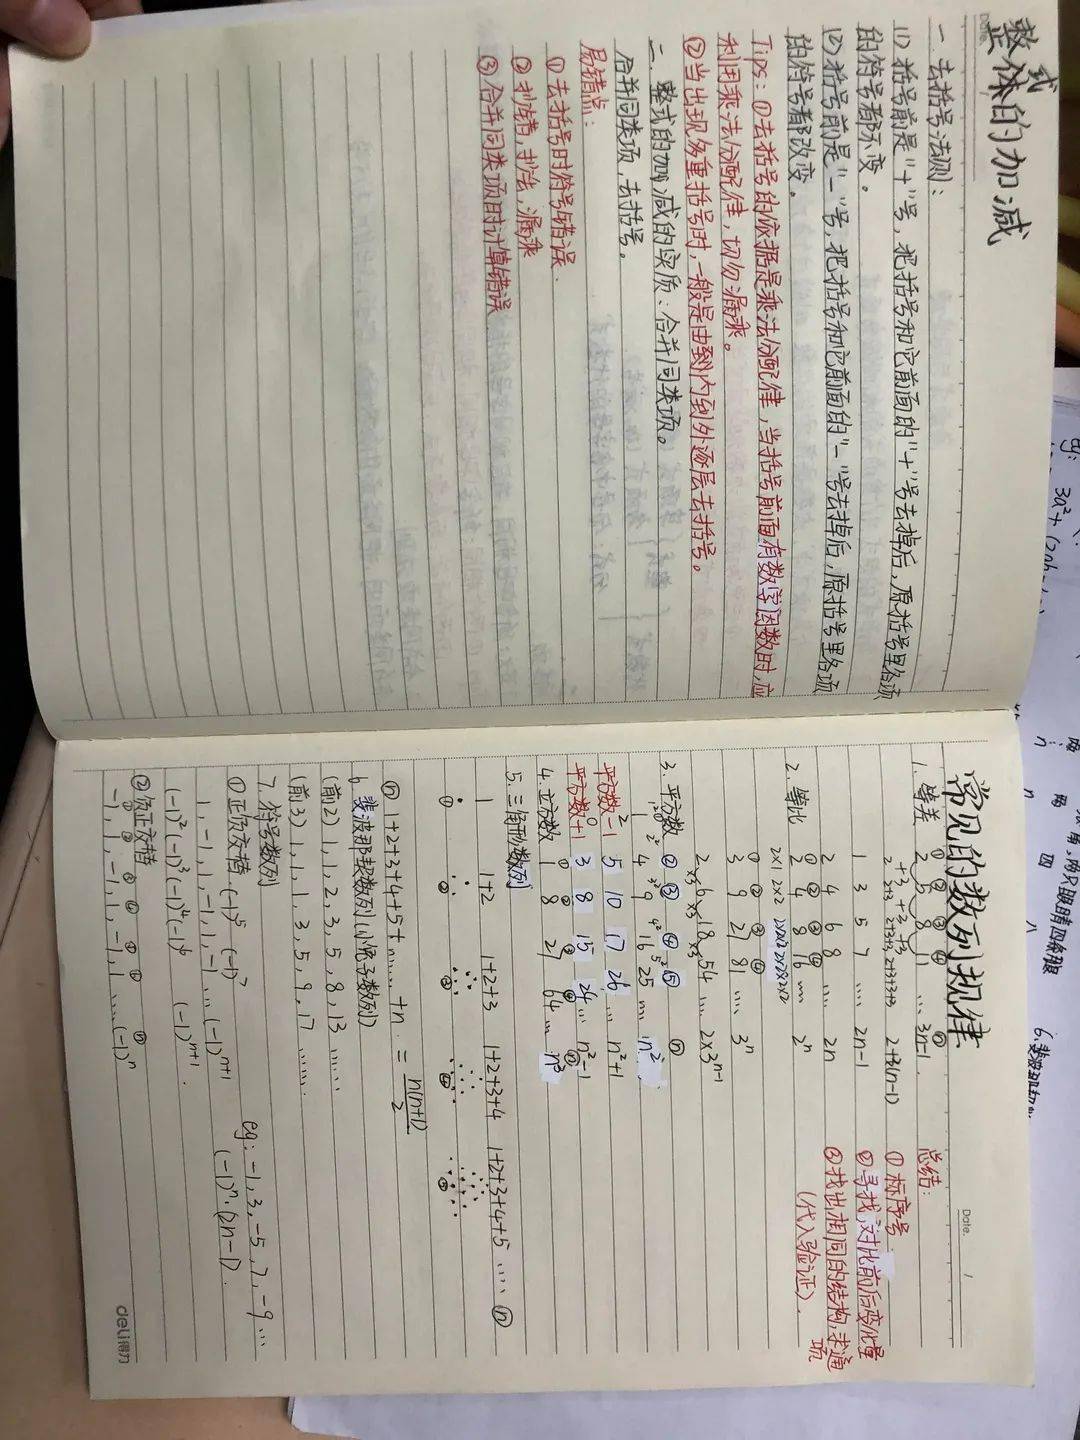 整式的加减
一、去括号法则：
(1) 括号前是"+"号，把括号和它前面的"+"号去掉后，原括号里各项
的符号都不变。
(2) 括号前是"-"号，把括号和它前面的"-"号去掉后，原括号里各项
的符号都改变。
Tips：①去括号的依据是乘法分配律，当括号前面有数字因数时，应
利用乘法分配律，切勿漏乘。
②当出现多重括号时，一般是由到内到外逐层去括号。
二、整式的加减的实质：合并同类项。
合并同类项，去括号。
易错点：
①去括号时符号错误.
②抄错，抄法，漏乘
③合并同类项时计算错误
常见的数列规律
Date. /
1. 等差 2 5 8 11 .... 3n-1
+3 +3 +3
2 2+3 2+3+3 2+3+3+3 2+3(n-1)
1 3 5 7 .... 2n-1
2 4 6 8 .... 2n
2. 等比 2 4 8 16 .... 2ⁿ
2×1 2×2 2×2×2 2×2×2×2
3 9 27 81 .... 3ⁿ
2 6 18 54 .... 2×3ⁿ⁻¹
×3 ×3 ×3
总结：
①标序号
②寻找，对比前后变化量
③找出相同的结构，求通
项
(代入验证).
3. 平方数 1 4 9 16 25 .... n²
平方数 2 5 10 17 26 ... n²+1
平方数 0 3 8 15 24 ... n²-1
4. 立方数 1 8 27 64 ... n³
5. 三角形数列
1 1+2 1+2+3 1+2+3+4 1+2+3+4+5 .... ⓝ
① ② ③ ④ ⑤
ⓝ 1+2+3+4+5+ ...... +n = n(n+1)/2
6. 斐波那契数列 (小兔子数列)
(前2) 1, 1, 2, 3, 5, 8, 13 ......
(前3) 1, 1, 1, 3, 5, 9, 17 ......
7. 符号数列
①正负交替 (-1)⁵ (-1)⁷
1, -1, 1, -1, 1, -1 .... (-1)ⁿ⁺¹
(-1)² (-1)³ (-1)⁴ (-1)⁶ (-1)ⁿ⁺¹
eg: -1, 3, -5, 7, -9 ...
(-1)ⁿ·(2n-1).
②负正交替
-1, 1, -1, 1, -1, 1 .... (-1)ⁿ
deli得力
3a²+